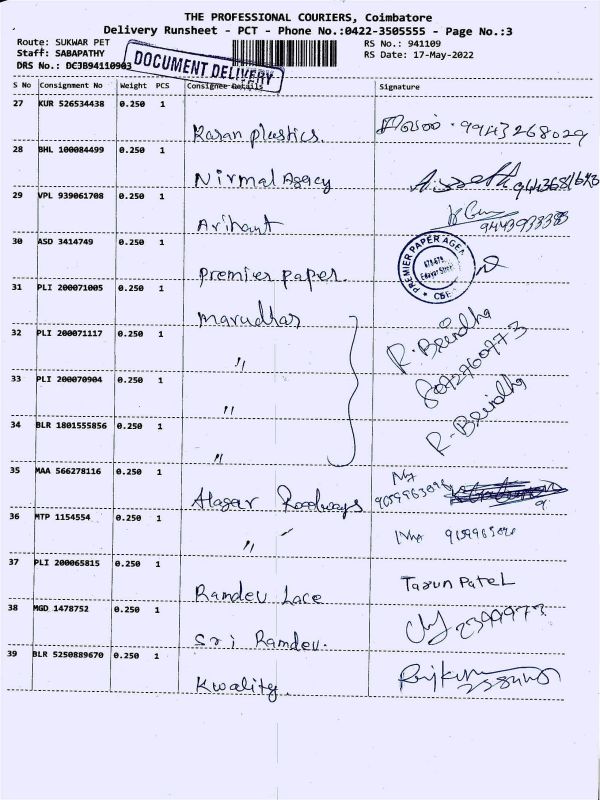 THE PROFESSIONAL COURIERS, Coimbatore
Delivery Runsheet - PCT - Phone No.:0422-3505555 - Page No.:3
Route: SUKWAR PET RS No.: 941109
Staff: SABAPATHY RS Date: 17-May-2022
DRS No.: DCJB94110903
DOCUMENT DELIVERY
S No Consignment No Weight PCS Consignee Details Signature
27 KUR 526534438 0.250 1
Karan plastics. 9943268029
28 BHL 100084499 0.250 1
Nirmal Agecy
29 VPL 939061708 0.250 1
Arihant 9443933383
30 ASD 3414749 0.250 1
Premier paper. PREMIER PAPER CBE
31 PLI 200071005 0.250 1
marudhar
32 PLI 200071117 0.250 1
" R. Beirdha
8072760773
33 PLI 200070904 0.250 1
"
34 BLR 1801555856 0.250 1
" R. Beirdha
35 MAA 566278116 0.250 1
Alagar Roadways
36 MTP 1154554 0.250 1
"
37 PLI 200065815 0.250 1
Ramdev Lace Tarun Patel
38 MGD 1478752 0.250 1
Sri Ramdev. 2399973
39 BLR 5250889670 0.250 1
Kwality. Rajkum